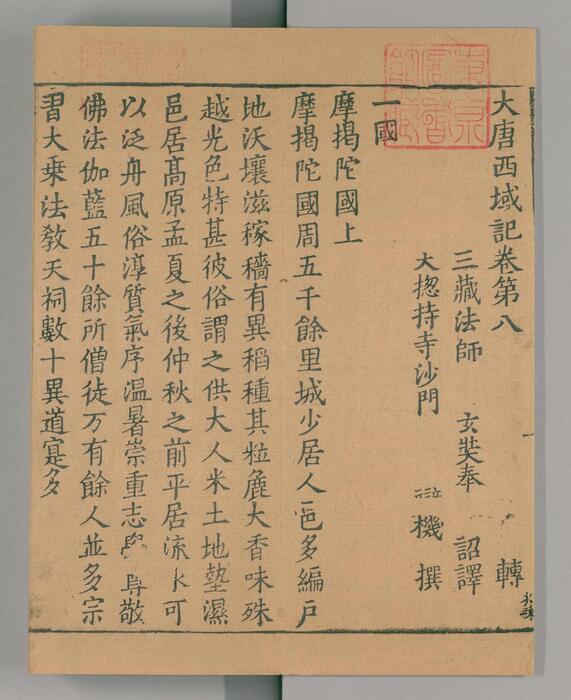 大唐西域記卷第八 一 轉
三藏法師 玄奘奉 詔譯
大揔持寺沙門 機 撰
一國
摩揭陀國上
摩揭陀國周五千餘里城少居人邑多編戶
地沃壤滋稼穡有異稻種其粒麁大香味殊
越光色特甚彼俗謂之供大人米土地墊濕
邑居髙原孟夏之後仲秋之前平居流水可
以泛舟風俗淳質氣序温暑崇重志學尊敬
佛法伽藍五十餘所僧徒万有餘人並多宗
習大乗法教天祠數十異道寔多